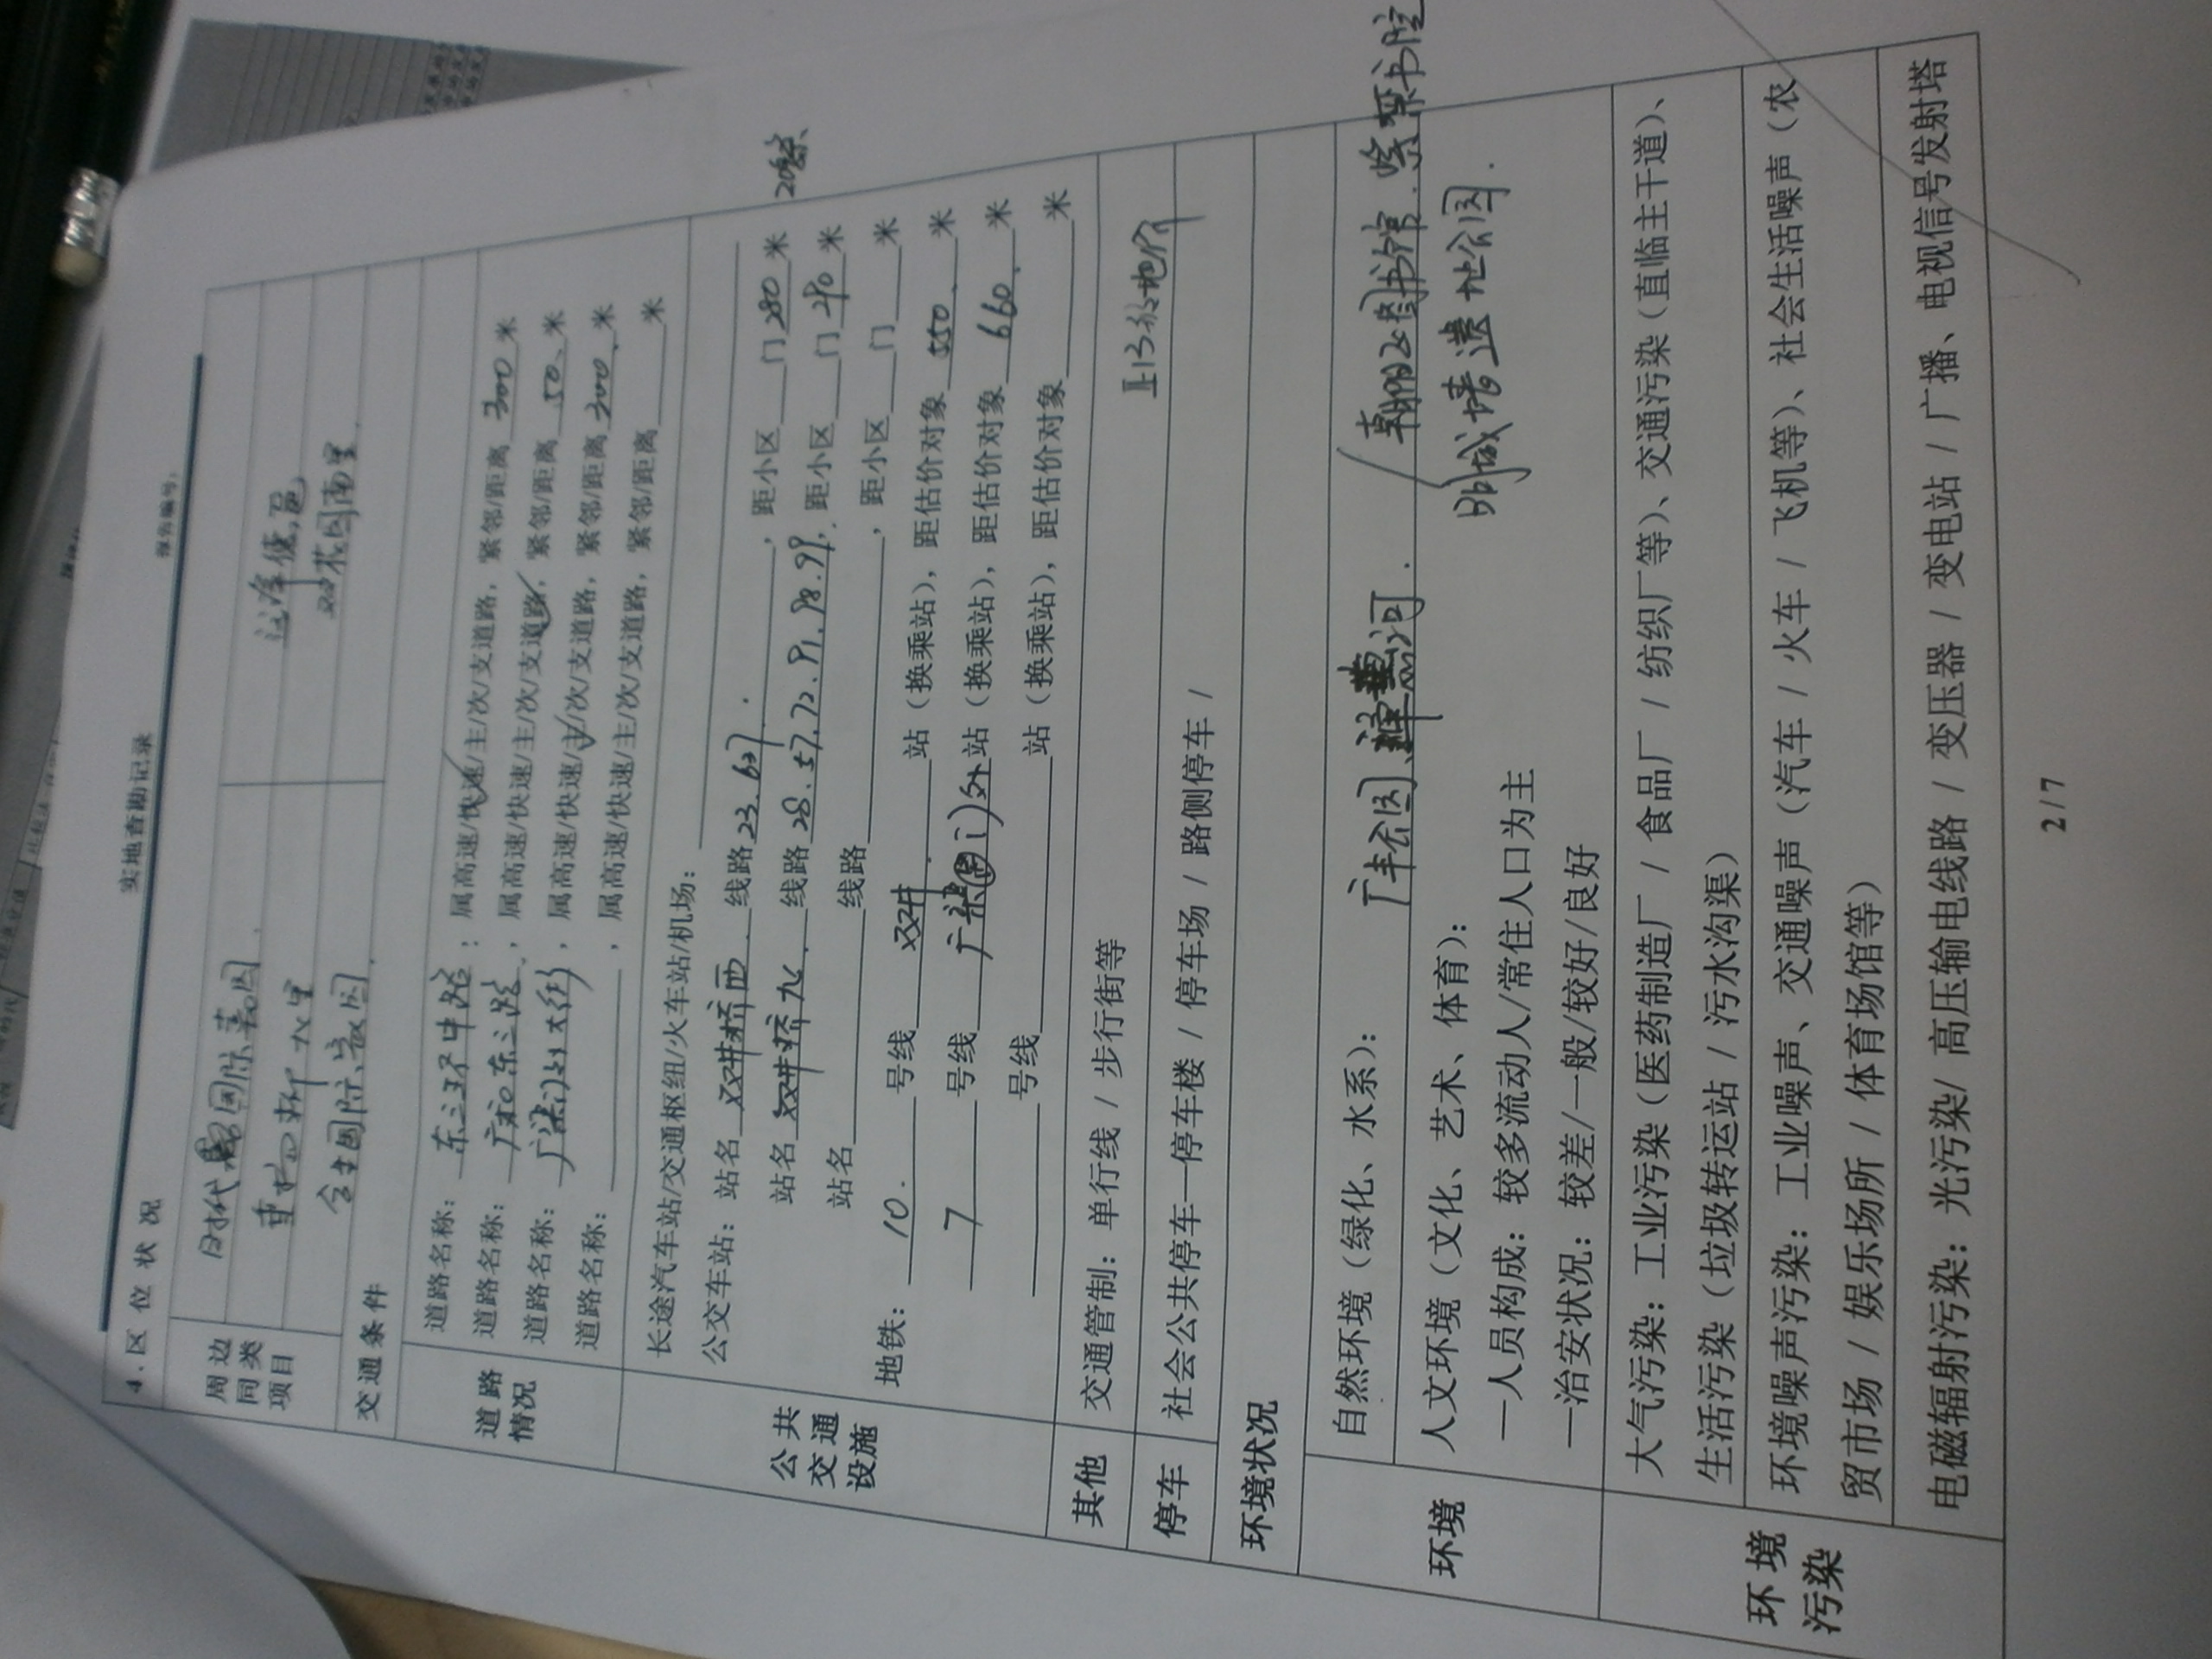 实地查勘记录
报告编号:
4.区 位 状 况
周 边 同 类 项目
时代国际嘉园
远洋德邑
双花园南里
合生国际家园
交通条件
道路情况
道路名称: 东三环中路 : 属高速/快速/主/次/支道路, 紧邻/距离 300 米
道路名称: 广和东三路 , 属高速/快速/主/次/支道路, 紧邻/距离 50 米
道路名称: 广渠门外大街 , 属高速/快速/主/次/支道路, 紧邻/距离 300 米
道路名称: , 属高速/快速/主/次/支道路, 紧邻/距离 米
公 共 交 通 设施
长途汽车站/交通枢纽/火车站/机场:
公交车站: 站名 双井桥西 线路 23. 637. , 距小区 门 280 米
站名 双井桥北 线路 28. 57. 72. , 距小区 门 210 米
站名 线路 , 距小区 门 米
地铁: 10 号线 双井 站(换乘站), 距估价对象 550 米
7 号线 广渠门外 站(换乘站), 距估价对象 660 米
号线 站(换乘站), 距估价对象 米
其他
交通管制: 单行线 / 步行街等
停车
社会公共停车—停车楼 / 停车场 / 路侧停车 /
环境状况
环境
自然环境(绿化、水系): 公园
人文环境(文化、艺术、体育): 朝阳区图书馆
明城墙遗址公园.
—人员构成: 较多流动人/常住人口为主
—治安状况: 较差/一般/较好/良好
环 境 污染
大气污染: 工业污染(医药制造厂 / 食品厂 / 纺织厂等)、交通污染(直临主干道)、
生活污染(垃圾转运站 / 污水沟渠)
环境噪声污染: 工业噪声、交通噪声(汽车 / 火车 / 飞机等)、社会生活噪声(农
贸市场 / 娱乐场所 / 体育场馆等)
电磁辐射污染: 光污染/ 高压输电线路 / 变压器 / 变电站 / 广播、电视信号发射塔
2/7